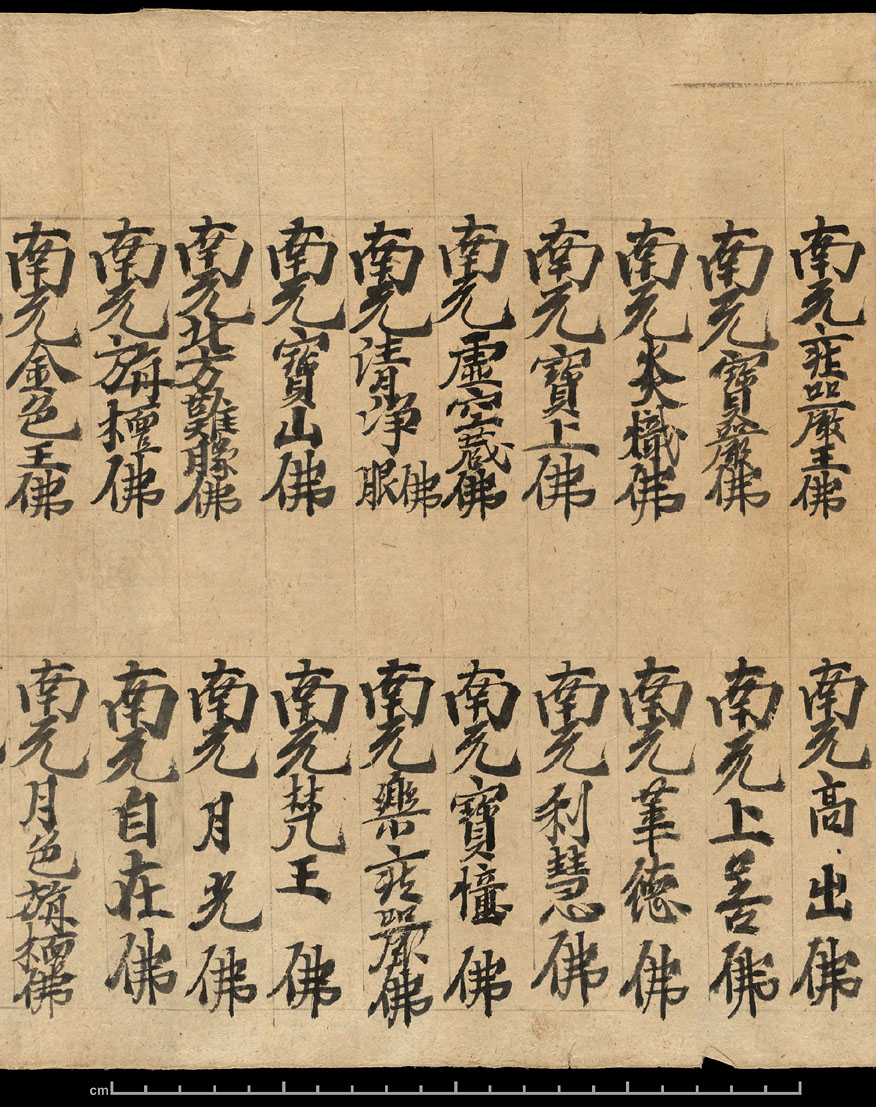 南无莊嚴王佛
南无高出佛
南无寶嚴佛
南无上善佛
南无炎幟佛
南无華德佛
南无寶上佛
南无利慧佛
南无虛空藏佛
南无寶幢佛
南无清淨眼佛
南无樂莊嚴佛
南无寶山佛
南无梵王佛
南无北方難勝佛
南无月光佛
南无旃檀佛
南无自在佛
南无金色王佛
南无月色旃檀佛
cm